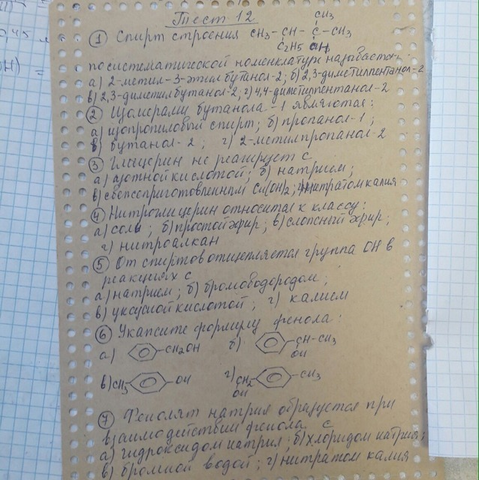 Тест 12
CH₃
① Спирт строения CH₃-CH-C-CH₃
C₂H₅ OH
по систематической номенклатуре называется:
а) 2-метил-3-этилбутанол-2; б) 2,3-диметилпентанол-2
в) 2,3-диметилбутанол-2; г) 4,4-диметилпентанол-2
② Изомерами бутанола-1 являются:
а) изопропиловый спирт; б) пропанол-1;
в) бутанол-2; г) 2-метилпропанол-2
③ Глицерин не реагирует с
а) азотной кислотой; б) натрием;
в) свежеприготовленным Cu(OH)₂; г) нитратом калия
④ Нитроглицерин относится к классу:
а) соль; б) простой эфир; в) сложный эфир;
г) нитроалкан
⑤ От спиртов отщепляется группа OH в
реакциях с
а) натрием; б) бромоводородом;
в) уксусной кислотой; г) калием
⑥ Укажите формулу фенола:
а) CH₂OH б) CH-CH₃
OH
в) CH₃ OH г) CH₂ CH₃
OH
⑦ Фенолят натрия образуется при
взаимодействии фенола с
а) гидроксидом натрия; б) хлоридом натрия;
в) бромной водой; г) нитратом калия